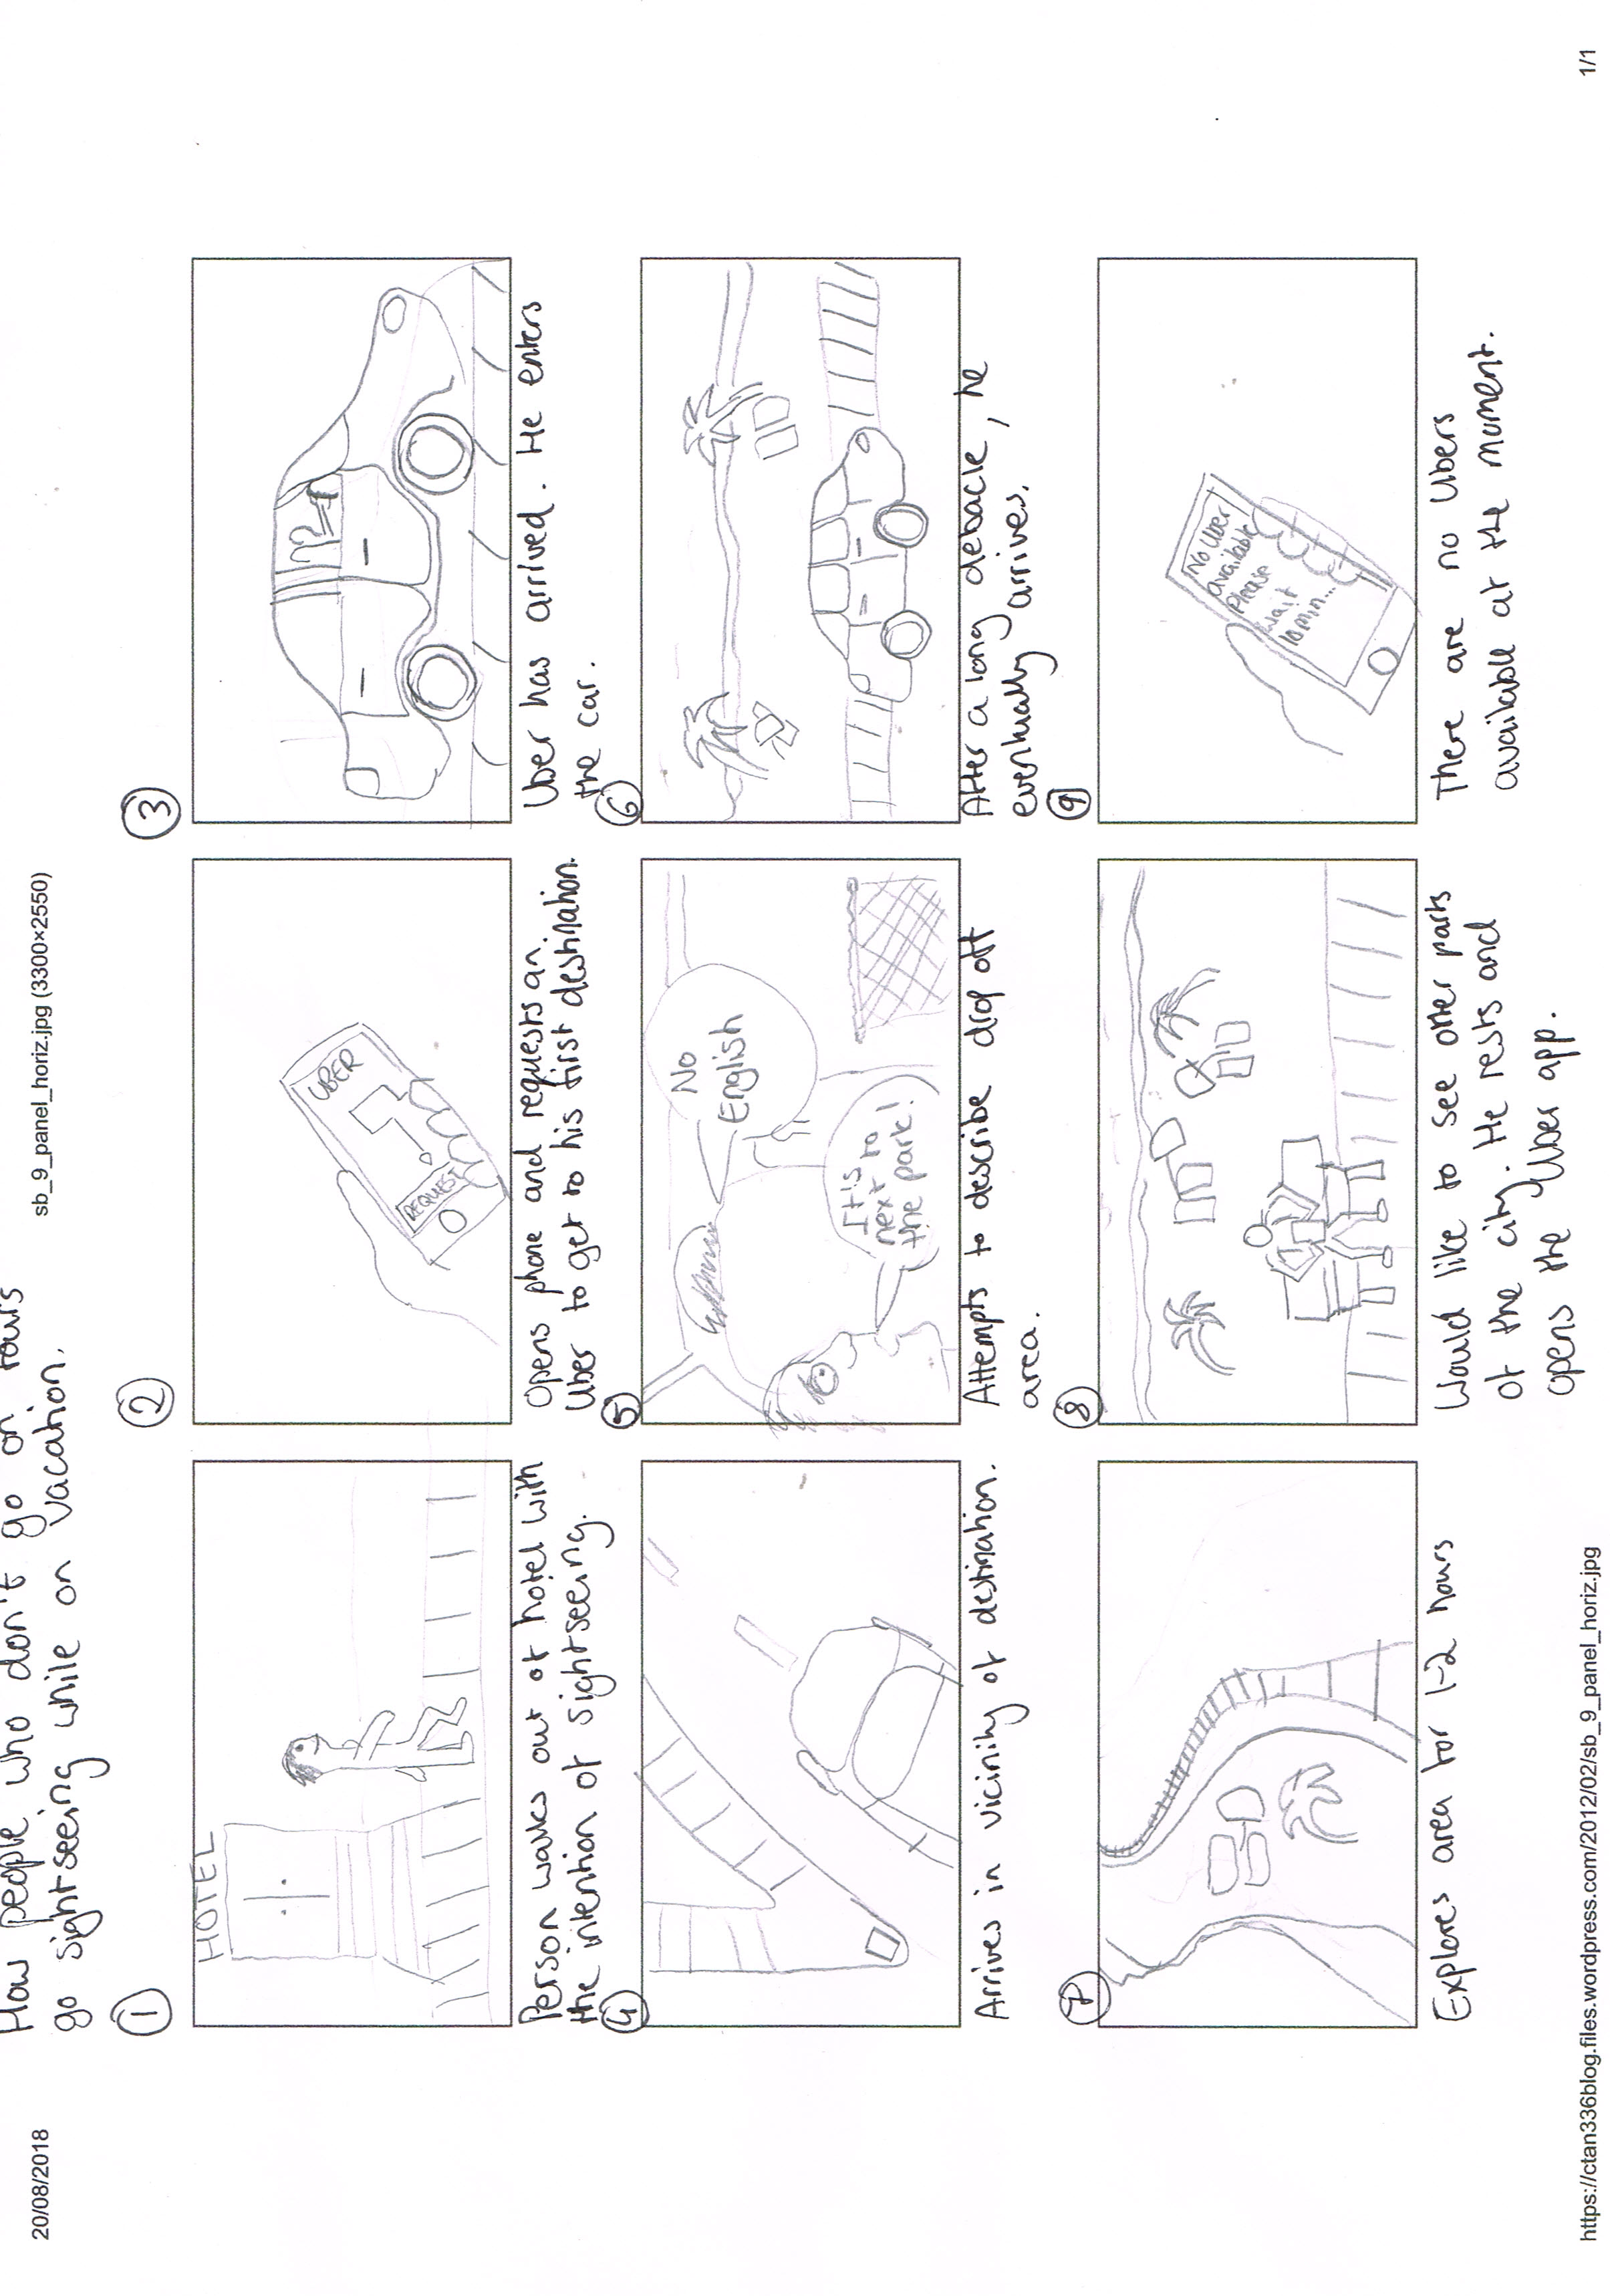 20/08/2018
sb_9_panel_horiz.jpg (3300×2550)
How people who don't go on tours
go sightseeing while on vacation.
1
HOTEL
Person walks out of hotel with
the intention of sightseeing.
2
UBER
REQUEST
Opens phone and requests an
Uber to get to his first destination.
3
Uber has arrived. He enters
the car.
4
Arrives in vicinity of destination.
5
No
English
It's
next to
the park!
Attempts to describe drop off
area.
6
After a long debacle, he
eventually arrives.
7
Explores area for 1-2 hours
8
Would like to see other parts
of the city. He rests and
opens the Uber app.
9
No Uber
available
Please
wait
10min...
There are no Ubers
available at the moment.
https://ctan336blog.files.wordpress.com/2012/02/sb_9_panel_horiz.jpg
1/1